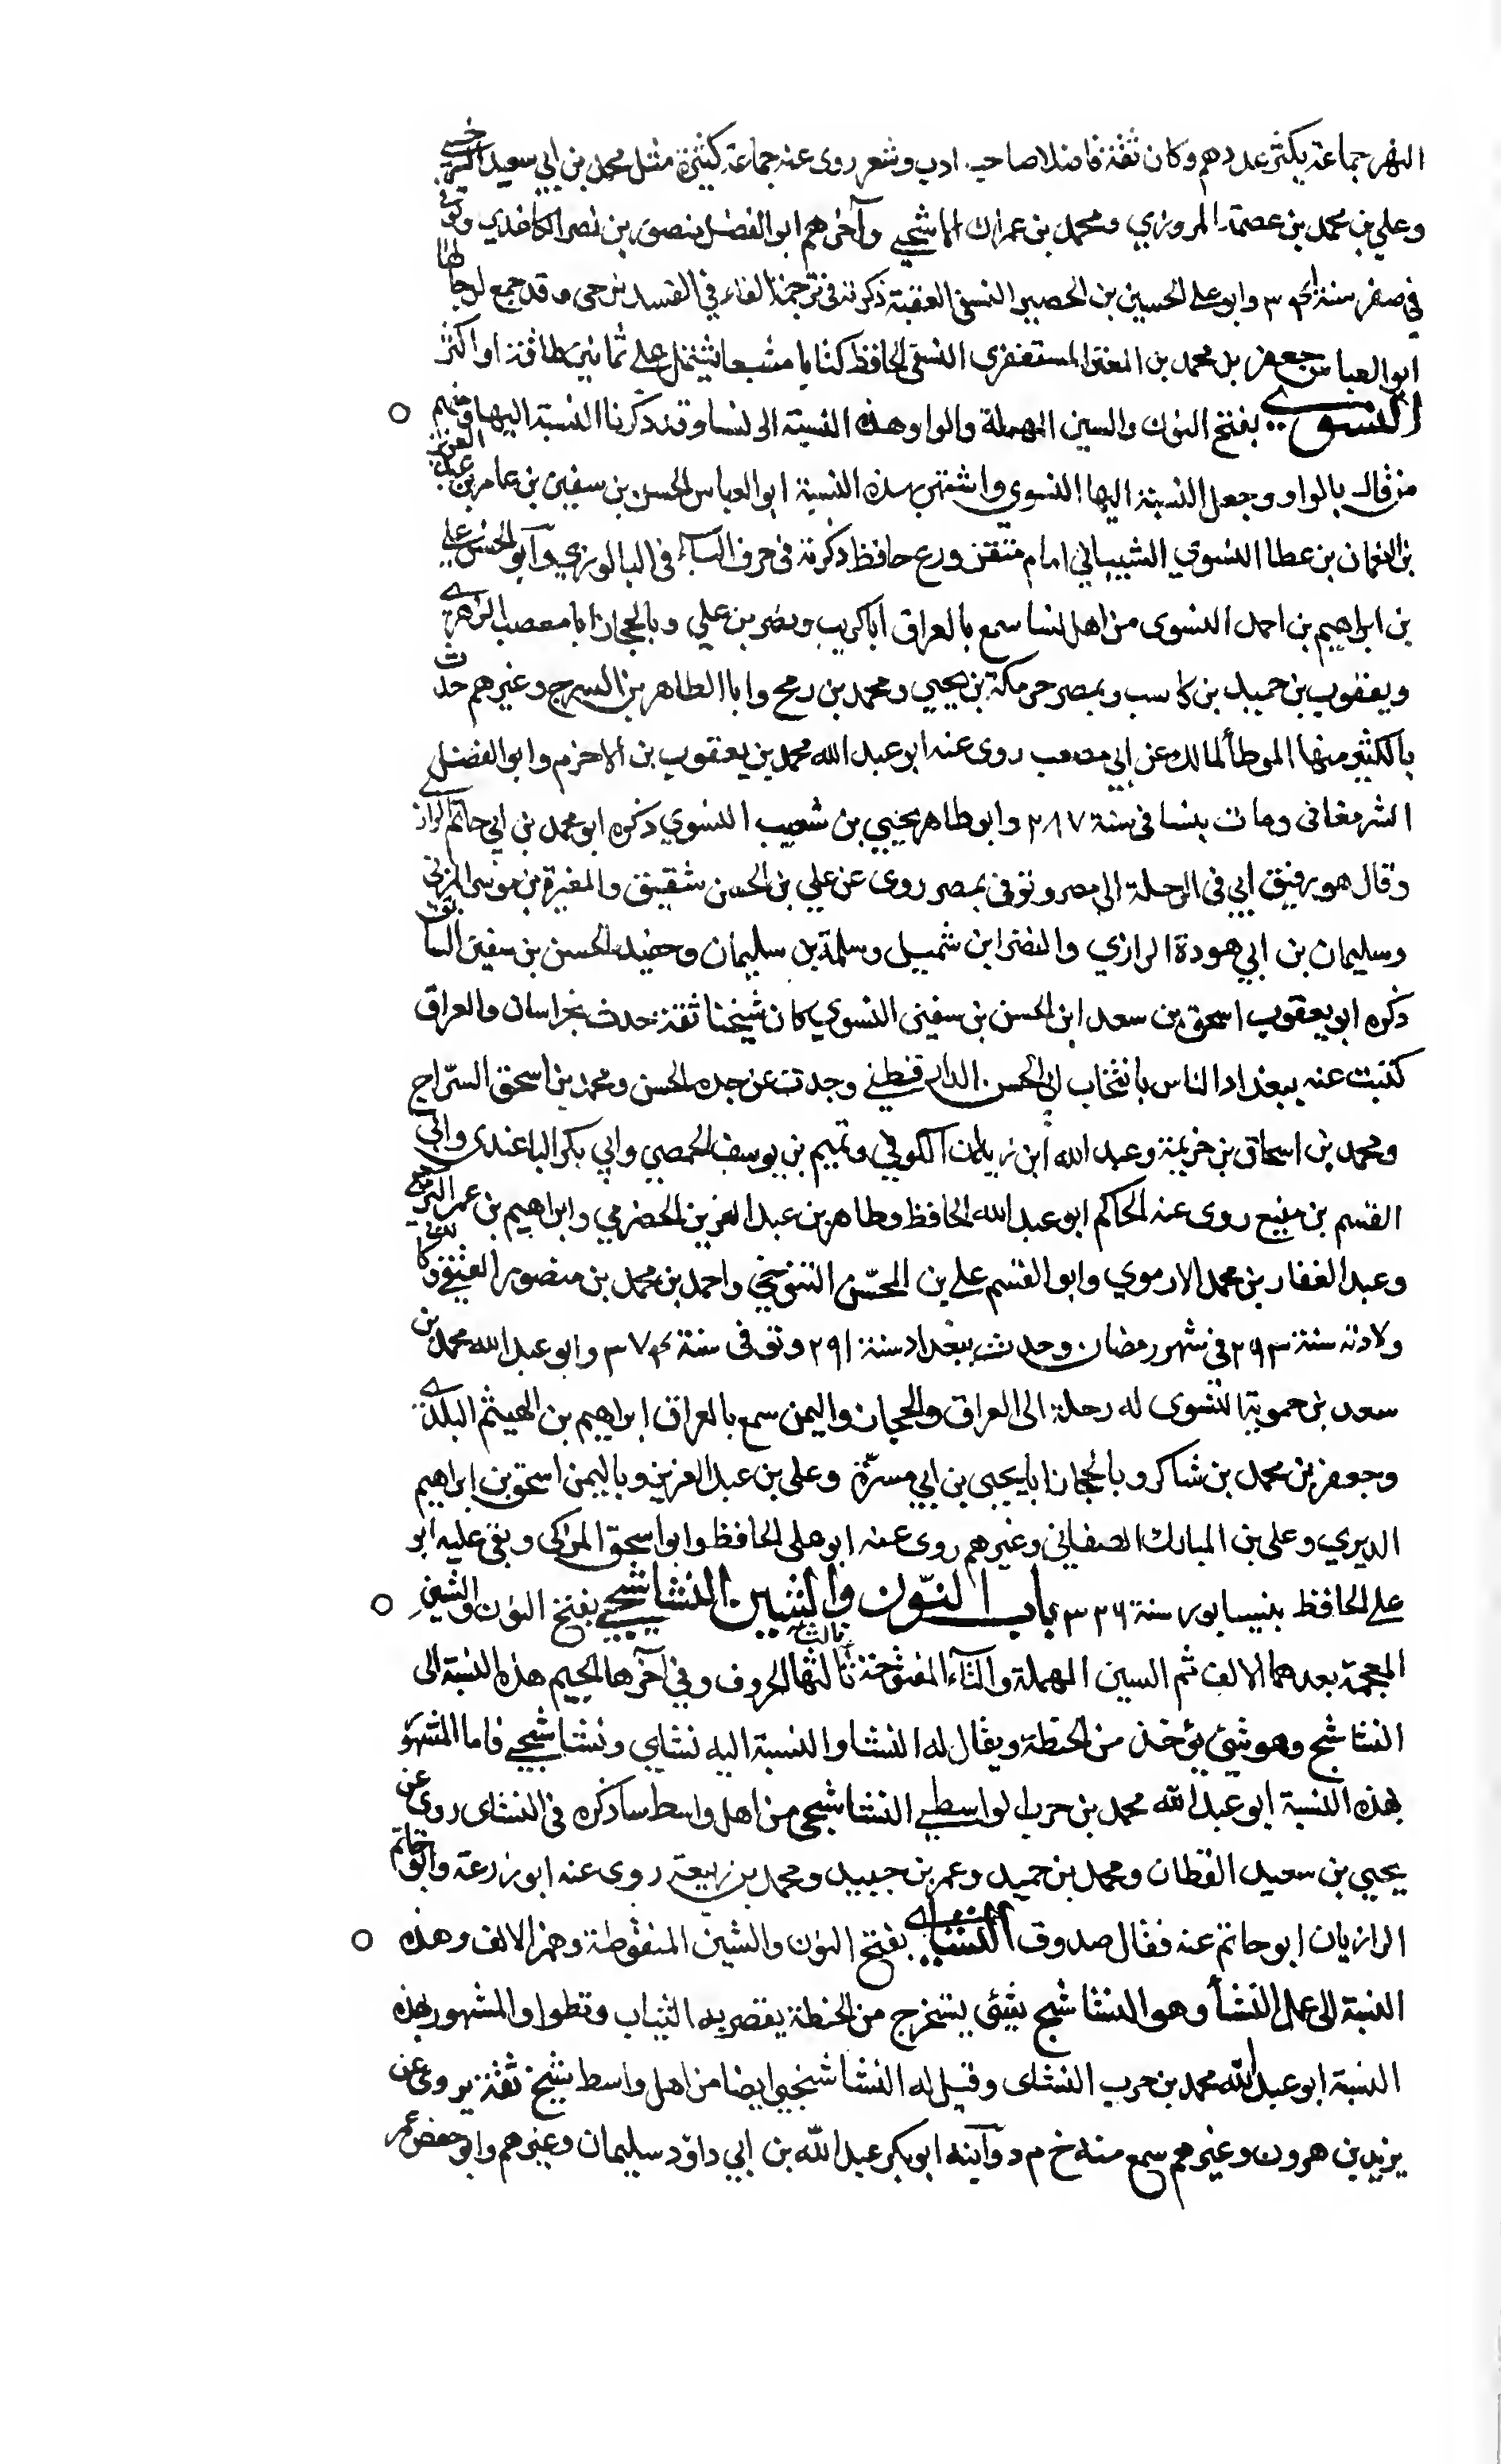 النهر جماعة يكثر عددهم وكان ثقة فاضلا صاحب ادب وشعر روى عنه جماعة كثيرة مثل محمد بن ابي سعيد السرخسي
وعلي بن محمد بن عصمة المروزي ومحمد بن عمران الماشجي وآخرهم ابو الفضل منصور بن نصر الكاغذي وتوفي
في صفر سنة وابو علي الحسين بن الخضر النسفي الفقيه ذكرته في ترجمة الفاء في الفشيديزجي وقد جمع لرجالها
ابو العباس جعفر بن محمد بن المعتز المستغفري النسفي الحافظ كتابا مشبعا يشتمل على ثمانين طاقة او اكثر
النسوي بفتح النون والسين المهملة والواو هذه النسبة الى نسا وقد ذكرنا النسبة اليها فمنهم
من قال بالواو وجعل النسبة اليها النسوي واشتهر بهذه النسبة ابو العباس الحسن بن سفين بن عامر بن عبد العزيز
بن النعمان بن عطا النسوي الشيباني امام متقن ورع حافظ ذكرته في حرف الباء في البالوزي وابو الحسن علي
بن ابراهيم بن احمد النسوي من اهل نسا سمع بالعراق اباكريب ونصر بن علي وبالحجاز ابا مصعب الزهري
ويعقوب بن حميد بن كاسب وبمصر حرملة بن يحيى ومحمد بن رمح وابا الطاهر بن السرج وغيرهم حدث
بالكثير منها الموطأ لمالك عن ابي مصعب روى عنه ابو عبد الله محمد بن يعقوب بن الاخرم وابو الفضل
الشرمغاني ومات بنسا في سنة ٢٨٧ وابو طاهر يحيى بن شعيب النسوي ذكره ابو محمد بن ابي حاتم الرازي
وقال هو رفيق ابي في الرحلة الى مصر وتوفى بمصر روى عن علي بن الحسن شقيق والمغيرة بن موسى المزني
وسليمان بن ابي هودة الرازي والنضر ابن شميل وسلمة بن سليمان وحفيد الحسن بن سفين السا
ذكره ابو يعقوب اسحق بن سعد ابن الحسن بن سفين النسوي كان شيخنا ثقة حدث بخراسان والعراق
كتبت عنه ببغداد الناس بانتخاب ابي الحسن الدارقطني وحدث عن جده الحسن ومحمد بن اسحق السرّاج
ومحمد بن اسحاق بن خزيمة وعبد الله ابن زيدان الكوفي وتميم بن يوسف الحمصي وابي بكر الباغندي وابي
القسم بن منيع روى عنه الحاكم ابو عبد الله الحافظ وطاهر بن عبد العزيز الحضرمي وابراهيم بن عمر البرمكي
وعبد الغفار بن محمد الارموي وابو القسم علي بن المحسّن التنوخي واحمد بن محمد بن منصور العتيقي وكا
ولادته سنة ٢٩٣ في شهر رمضان وحدث ببغداد سنة وتوفى سنة وابو عبد الله محمد بن
سعد بن حموية النسوي له رحلة الى العراق والحجاز واليمن سمع بالعراق ابراهيم بن الهيثم البلدي
وجعفر بن محمد بن شاكر وبالحجاز ابا يحيى بن ابي مسرّة وعلى بن عبد العزيز وباليمن اسحق بن ابراهيم
الديري وعلى بن المبارك الصنعاني وغيرهم روى عنه ابو علي الحافظ وابو اسحق المزكي وبقى عليه ابو
علي الحافظ بنيسابور سنة ٣٣٦ باب النّون والشين النشاستجي بفتح النون والشين
المعجمة بعدهما الالف ثم السين المهملة والتاء المفتوحة ثالثها الحروف وفي آخرها الجيم هذه النسبة الى
النشاستج وهو شئ يؤخذ من الحنطة ويقال له النشا والنسبة اليه نشاي ونشاستجي فاما المشهور
بهذه النسبة ابو عبد الله محمد بن حرب الواسطي النشاستجي من اهل واسط ساذكره في النشاي روى عن
يحيى بن سعيد القطان ومحمد بن حميد وعمر بن حبيب ومحمد بن ربيعة روى عنه ابو زرعة وابو حاتم
الرازيان ابو حاتم عنه فقال صدوق النشاي بفتح النون والشين المنقوطة وهمز الالف وهذه
النسبة الى عمل النشأ وهو النشاستج شئ يستخرج من الحنطة يقصر به الثياب وتطوا والمشهور بهذه
النسبة ابو عبد الله محمد بن حرب النشاى وقيل له النشاستجي ايضا من اهل واسط شيخ ثقة يروى عن
يزيد بن هرون وغيرهم سمع منه خ م د وابنه ابو بكر عبد الله بن ابي داؤد سليمان وغيرهم وابو حفص عمر